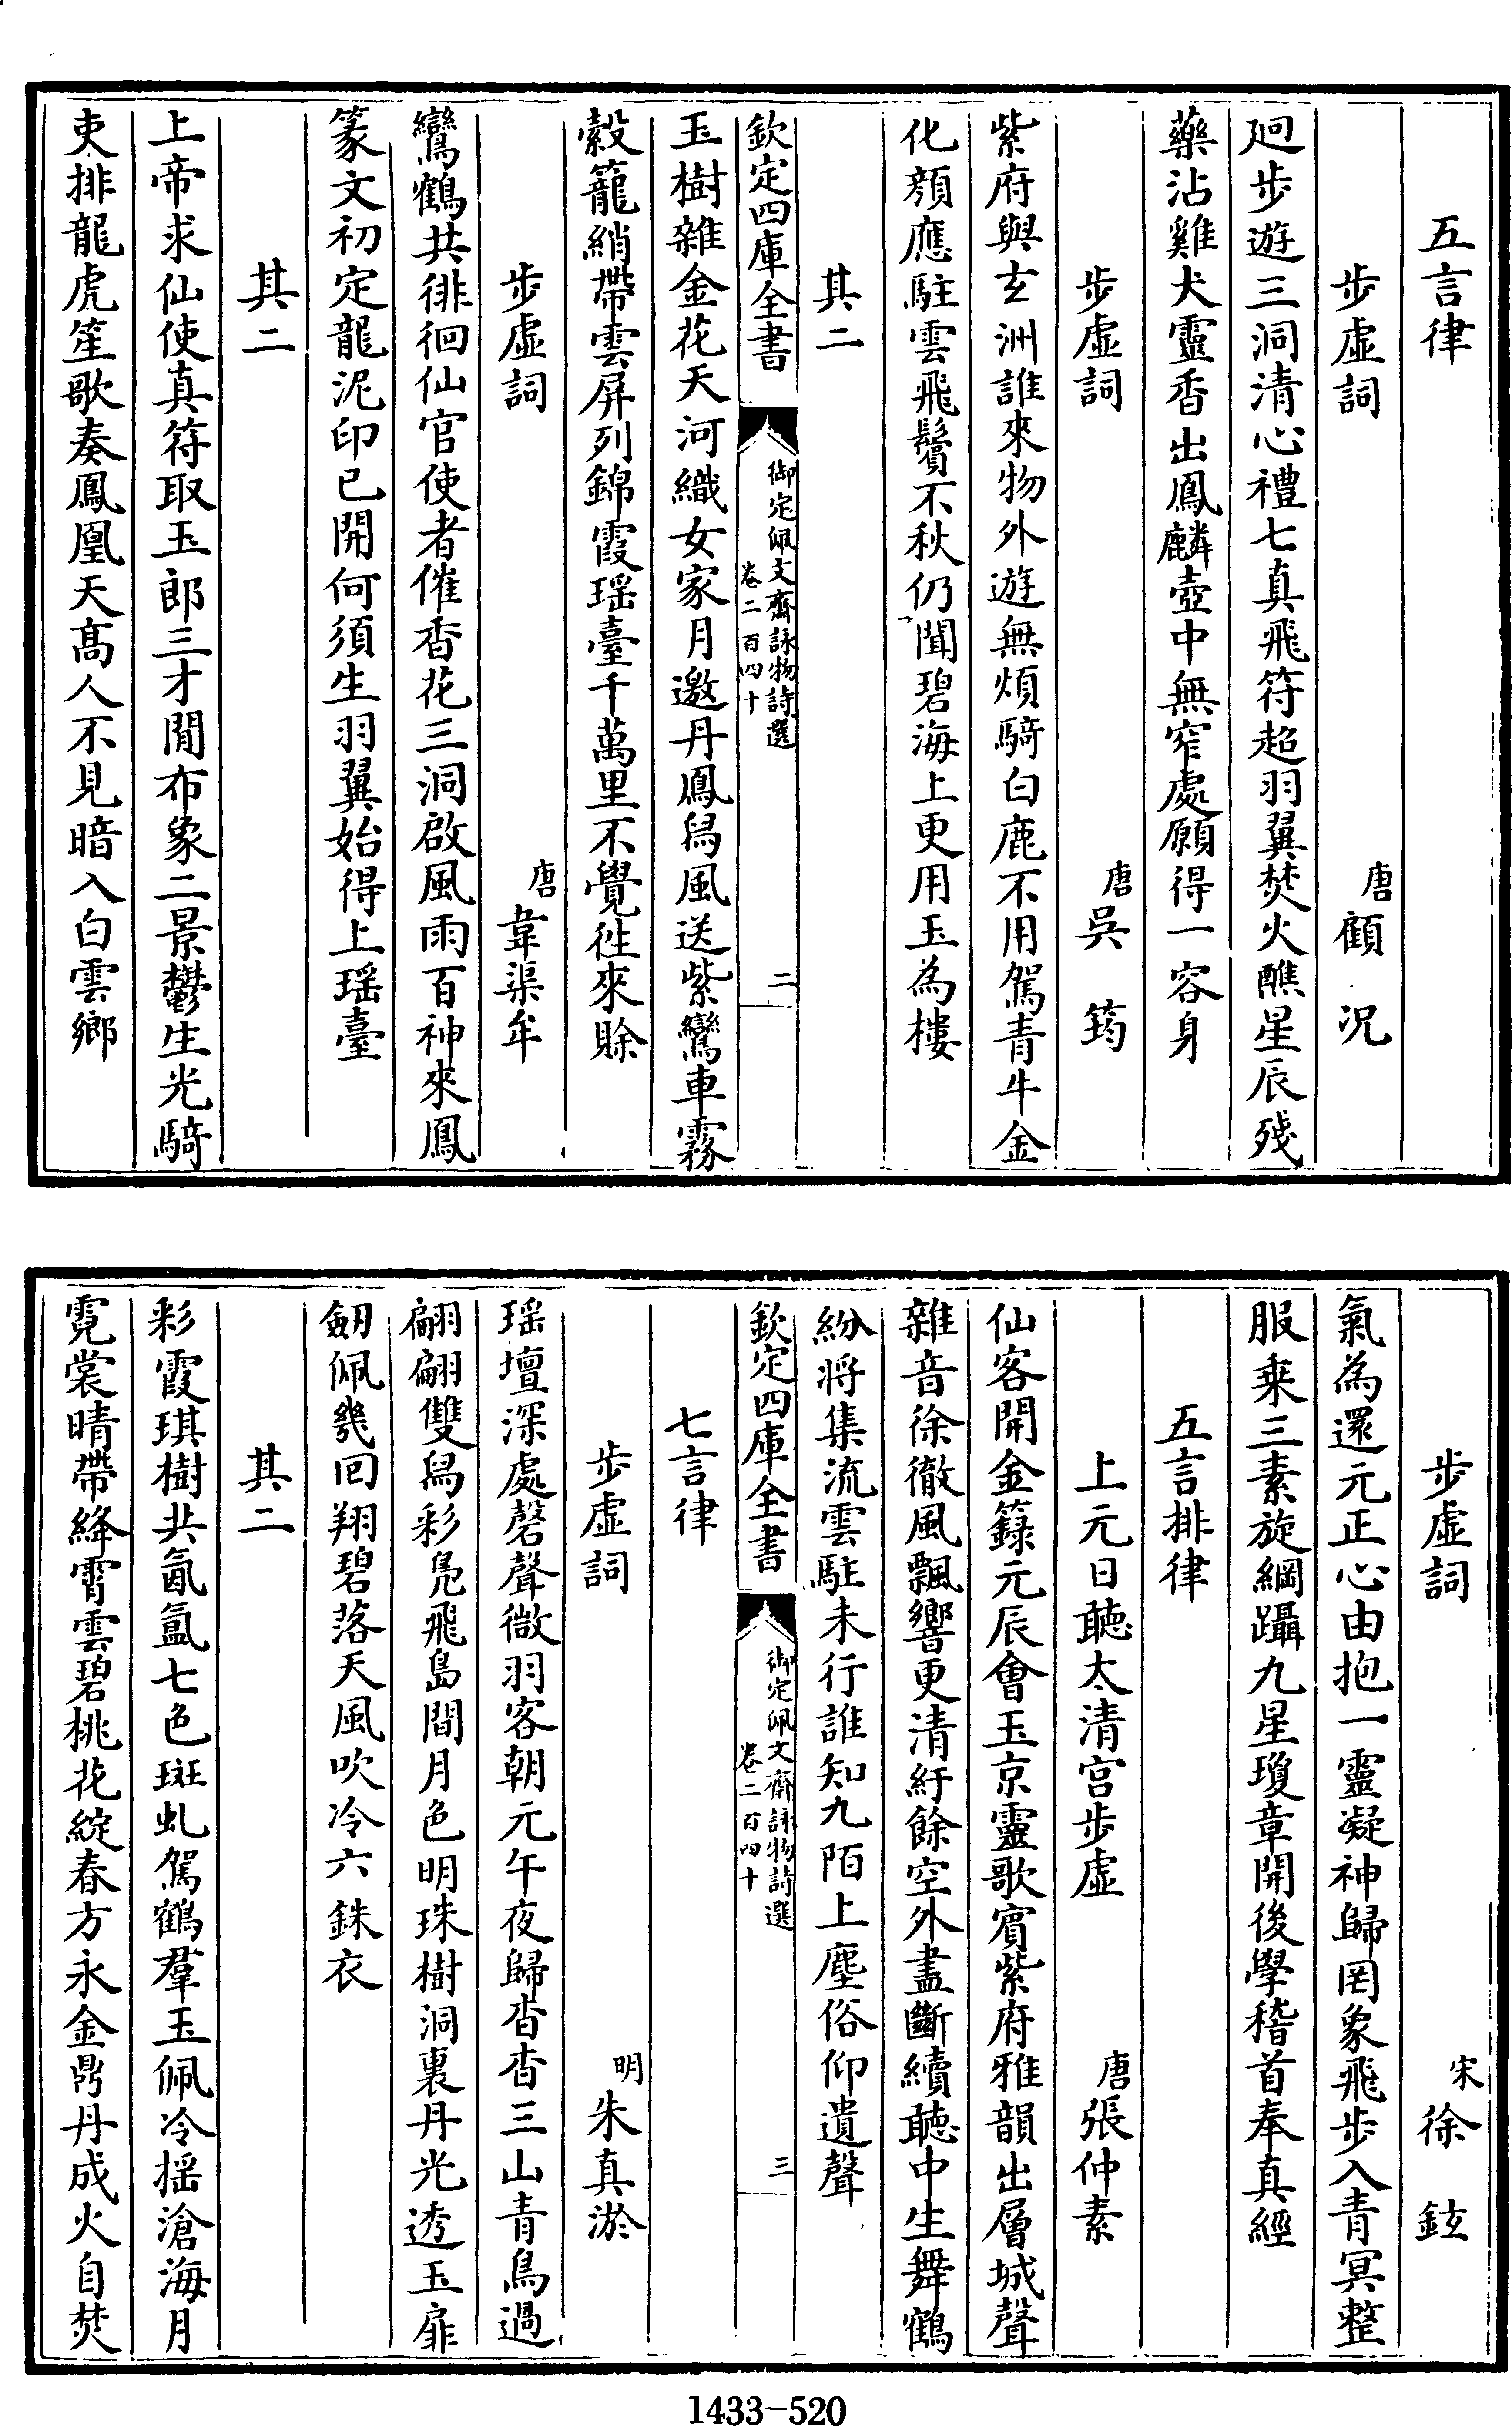 五言律
步虛詞　唐顧況
廻步遊三洞清心禮七真飛符超羽翼焚火醮星辰殘
藥沾雞犬靈香出鳳麟壺中無窄處願得一容身
步虛詞　唐吳筠
紫府與玄洲誰來物外遊無煩騎白鹿不用駕青牛金
化顏應駐雲飛鬢不秋仍聞碧海上更用玉為樓
其二
欽定四庫全書　御定佩文齋詠物詩選　卷二百四十　二
玉樹雜金花天河織女家月邀丹鳳舄風送紫鸞車霧
縠籠綃帶雲屏列錦霞瑤臺千萬里不覺徃來賒
步虛詞　唐韋渠牟
鸞鶴共徘徊仙官使者催香花三洞啟風雨百神來鳳
篆文初定龍泥印已開何須生羽翼始得上瑤臺
其二
上帝求仙使真符取玉郎三才閒布象二景鬱生光騎
吏排龍虎笙歌奏鳳凰天高人不見暗入白雲鄉
步虛詞　宋徐鉉
氣為還元正心由抱一靈凝神歸罔象飛步入青冥整
服乘三素旋綱躡九星瓊章開後學稽首奉真經
五言排律
上元日聽太清宮步虛　唐張仲素
仙客開金籙元辰會玉京靈歌賓紫府雅韻出層城聲
雜音徐徹風飄響更清紆餘空外盡斷續聽中生舞鶴
紛將集流雲駐未行誰知九陌上塵俗仰遺聲
欽定四庫全書　御定佩文齋詠物詩選　卷二百四十　三
七言律
步虛詞　明朱真淤
瑤壇深處磬聲微羽客朝元午夜歸杳杳三山青鳥過
翩翩雙舄彩凫飛島間月色明珠樹洞裏丹光透玉扉
劒佩幾回翔碧落天風吹冷六銖衣
其二
彩霞琪樹共氤氳七色斑虬駕鶴羣玉佩冷搖滄海月
霓裳晴帶絳霄雲碧桃花綻春方永金鼎丹成火自焚
1433-520